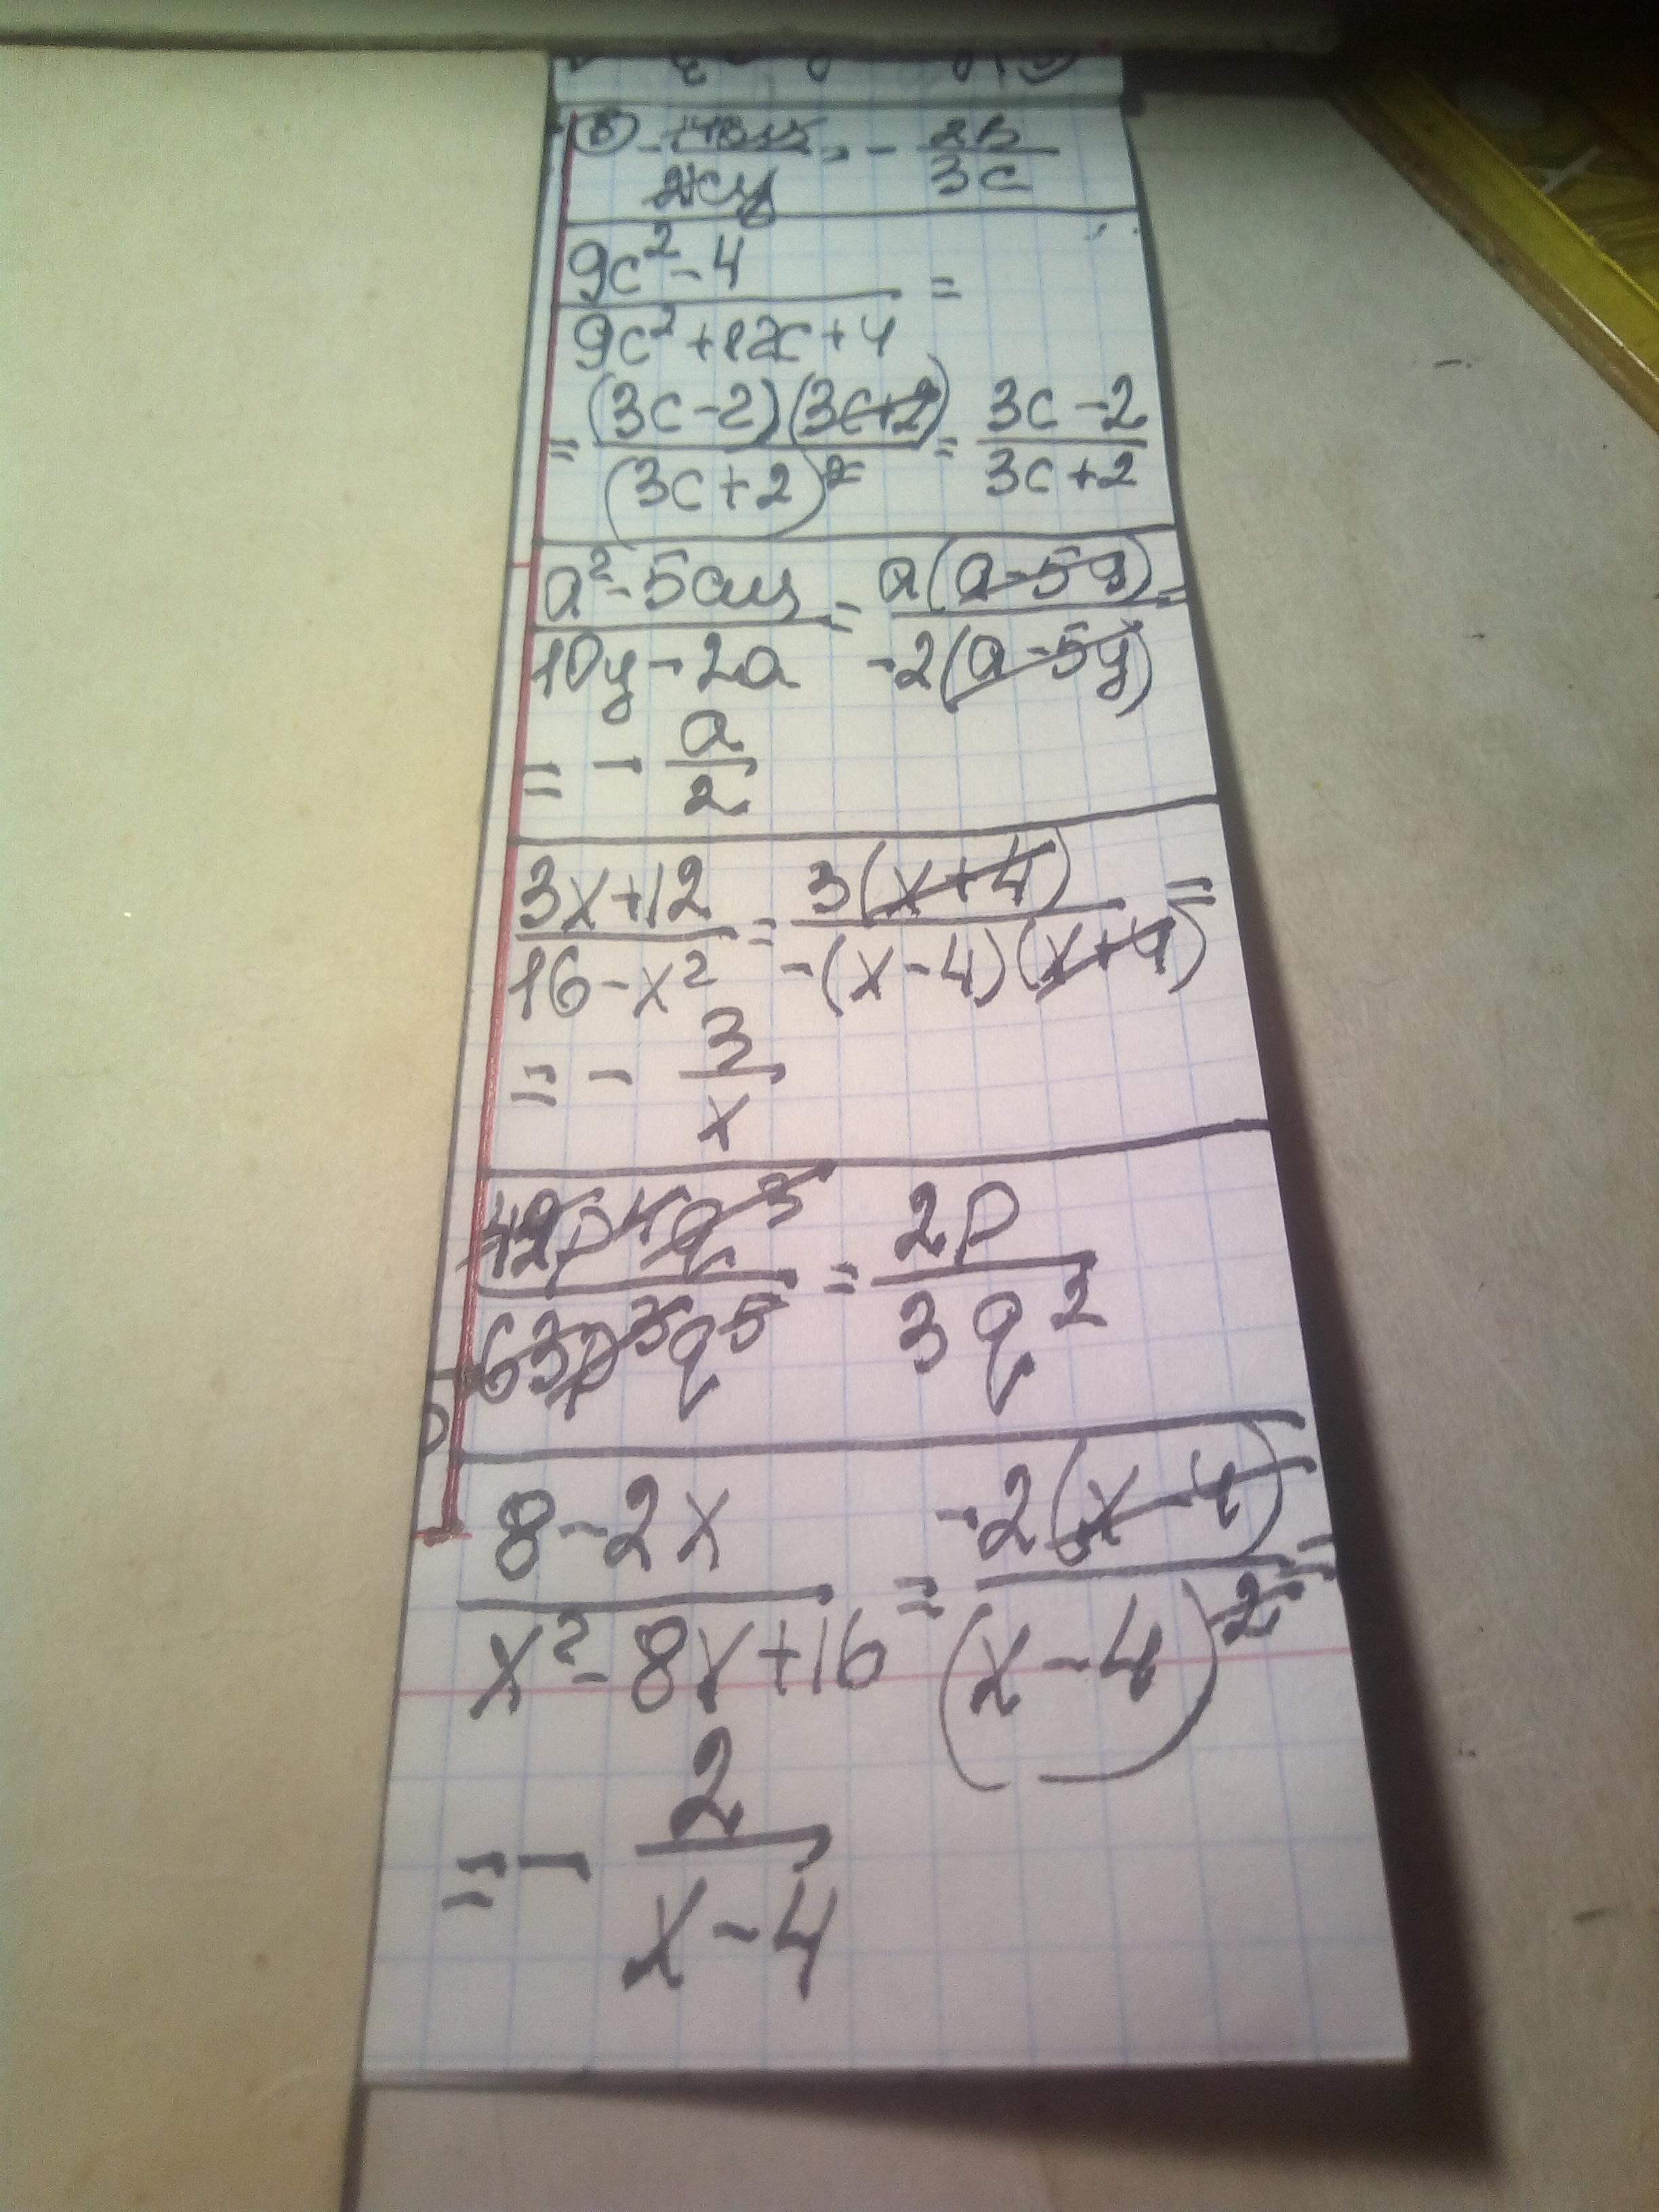 = - 2b/3c
9c² - 4 / 9c² + 12c + 4 =
= (3c-2)(3c+2) / (3c+2)² = 3c-2 / 3c+2
a² - 5ay / 10y - 2a = a(a-5y) / -2(a-5y) =
= - a/2
3x+12 / 16-x² = 3(x+4) / -(x-4)(x+4) =
= - 3/x
42p⁴q³ / 63p³q⁵ = 2p / 3q²
8-2x / x²-8x+16 = -2(x-4) / (x-4)² =
= - 2 / x-4